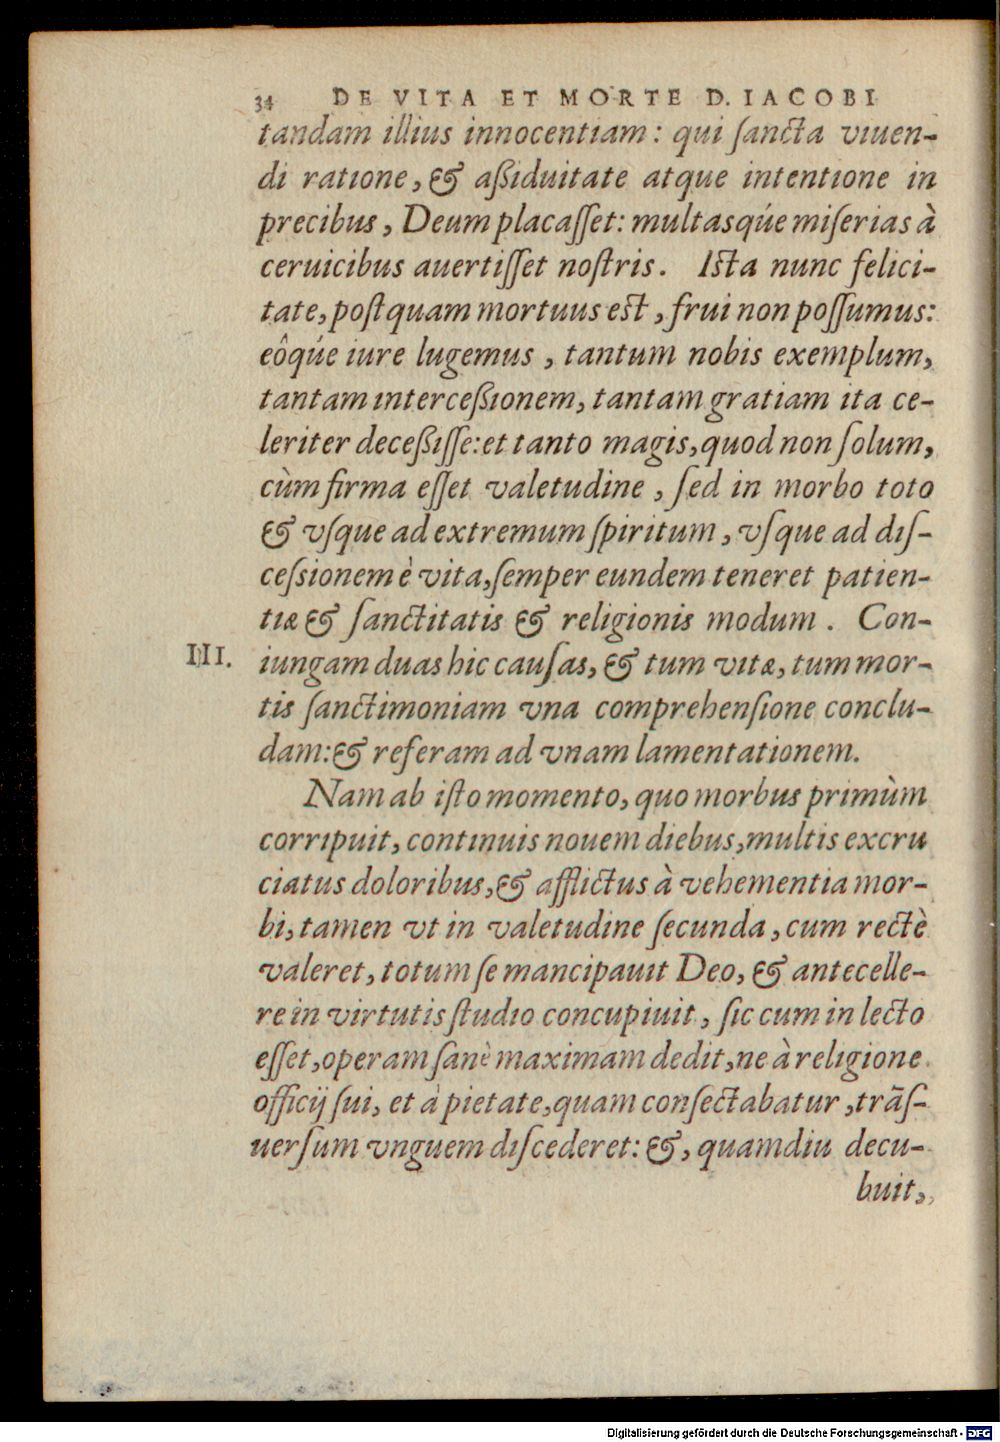 34 DE VITA ET MORTE D. IACOBI
tandam illius innocentiam: qui ſancta viuen-
di ratione, & aßiduitate atque intentione in
precibus, Deum placaſſet: multasqúe miſerias à
ceruicibus auertiſſet noſtris. Iſta nunc felici-
tate, poſtquam mortuus eſt, frui non poſſumus:
eôqúe iure lugemus, tantum nobis exemplum,
tantam interceßionem, tantam gratiam ita ce-
leriter deceßiſſe: et tanto magis, quod non ſolum,
cùm firma eſſet valetudine, ſed in morbo toto
& vſque ad extremum ſpiritum, vſque ad diſ-
ceſsionem è vita, ſemper eundem teneret patien-
tiæ & ſanctitatis & religionis modum. Con-
III. iungam duas hic cauſas, & tum vitæ, tum mor-
tis ſanctimoniam vna comprehenſione conclu-
dam: & referam ad vnam lamentationem.
Nam ab iſto momento, quo morbus primùm
corripuit, continuis nouem diebus, multis excru
ciatus doloribus, & afflictus à vehementia mor-
bi, tamen vt in valetudine ſecunda, cum rectè
valeret, totum ſe mancipauit Deo, & antecelle-
re in virtutis ſtudio concupiuit, ſic cum in lecto
eſſet, operam ſanè maximam dedit, ne à religione
officij ſui, et à pietate, quam conſectabatur, trãſ-
uerſum vnguem diſcederet: &, quamdiu decu-
buit,
Digitalisierung gefördert durch die Deutsche Forschungsgemeinschaft - DFG